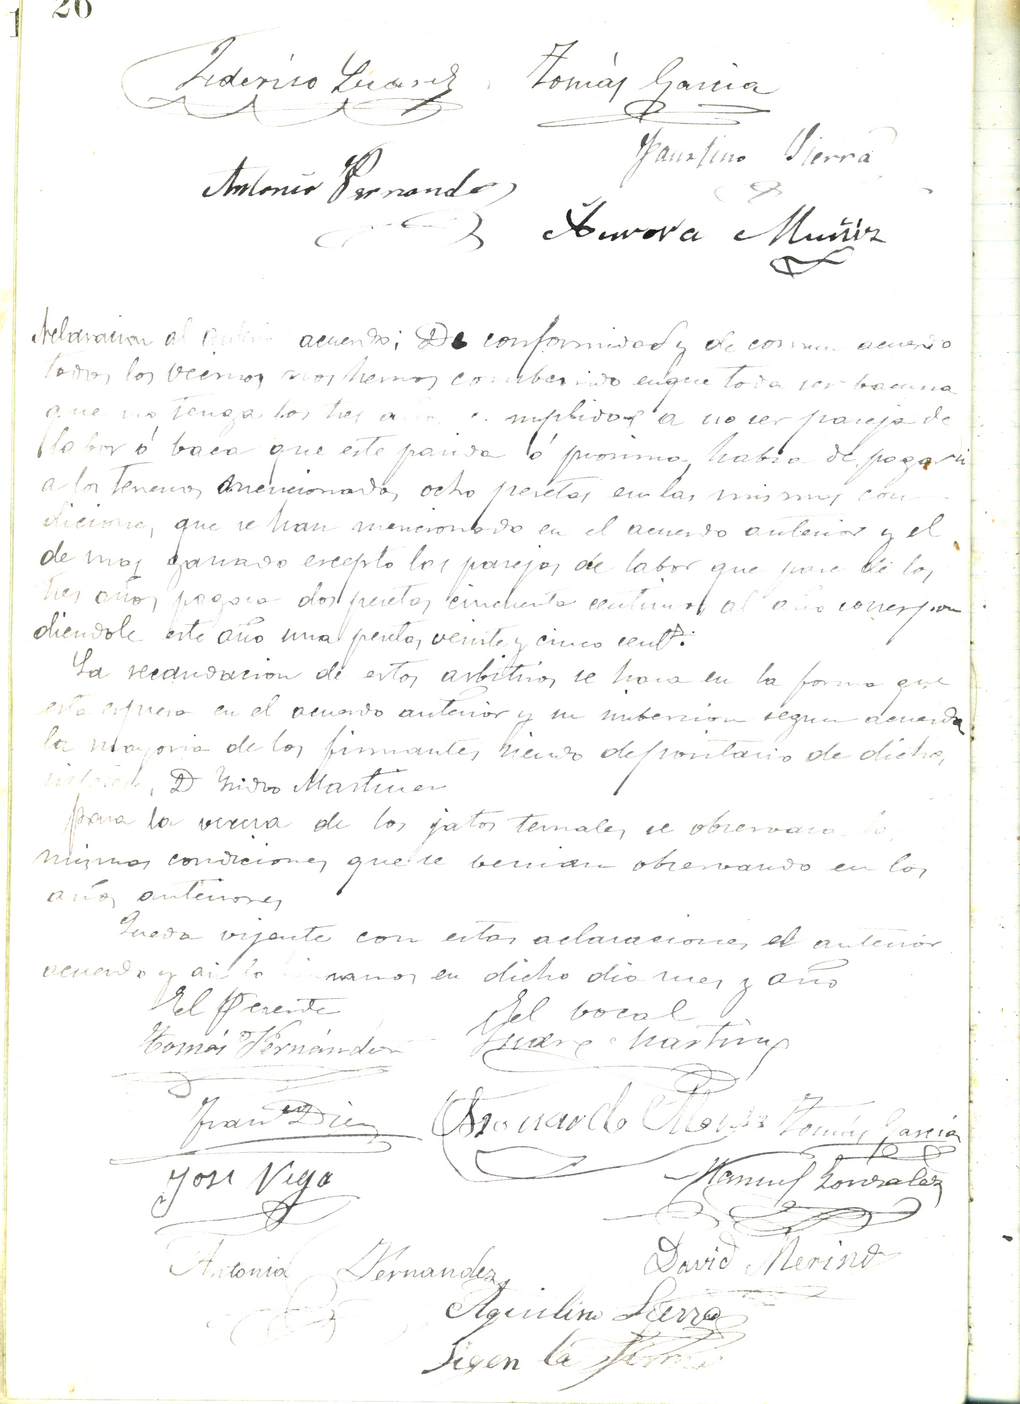 20
Federico Suarez Tomás Garcia
Faustino Sierra
Antonio Fernandez
Aurora Muñiz
Aclaracion al acuerdo; De conformidad y de comun acuerdo
todos los vecinos nos hemos combenido enque toda res bacuna
que no tenga los tres a no ser pareja de
labor ó baca que este parida ó procsima, habra de pagar
a los terrenos mencionados, ocho pesetas en las mismas con
diciones, que se han mencionado en el acuerdo anterior y el
de mas ganado escepto las parejas de labor que pase de los
tres años pagara dos pesetas cincuenta centimos al año correspon
diendole este año una peseta, veinte y cinco cents.
La recaudacion de estos arbitrios se hara en la forma que
esta espresa en el acuerdo anterior y su imbersion segun acuerda
la mayoria de los firmantes siendo depositario de dichos
D Isidro Martinez
para la vecera de los jatos ternales, se observara
mismas condiciones que se benian observando en los
años anteriores
Queda vijente con estas aclaraciones el anterior
acuerdo y en dicho dia mes y año
El Presidente El bocal
Tomás Fernández Martinez
Franco Diez Tomás Garcia
José Vega Manuel Gonzalez
Antonia Fernandez David Merino
Aquilino Sierra
Sigen la firmas